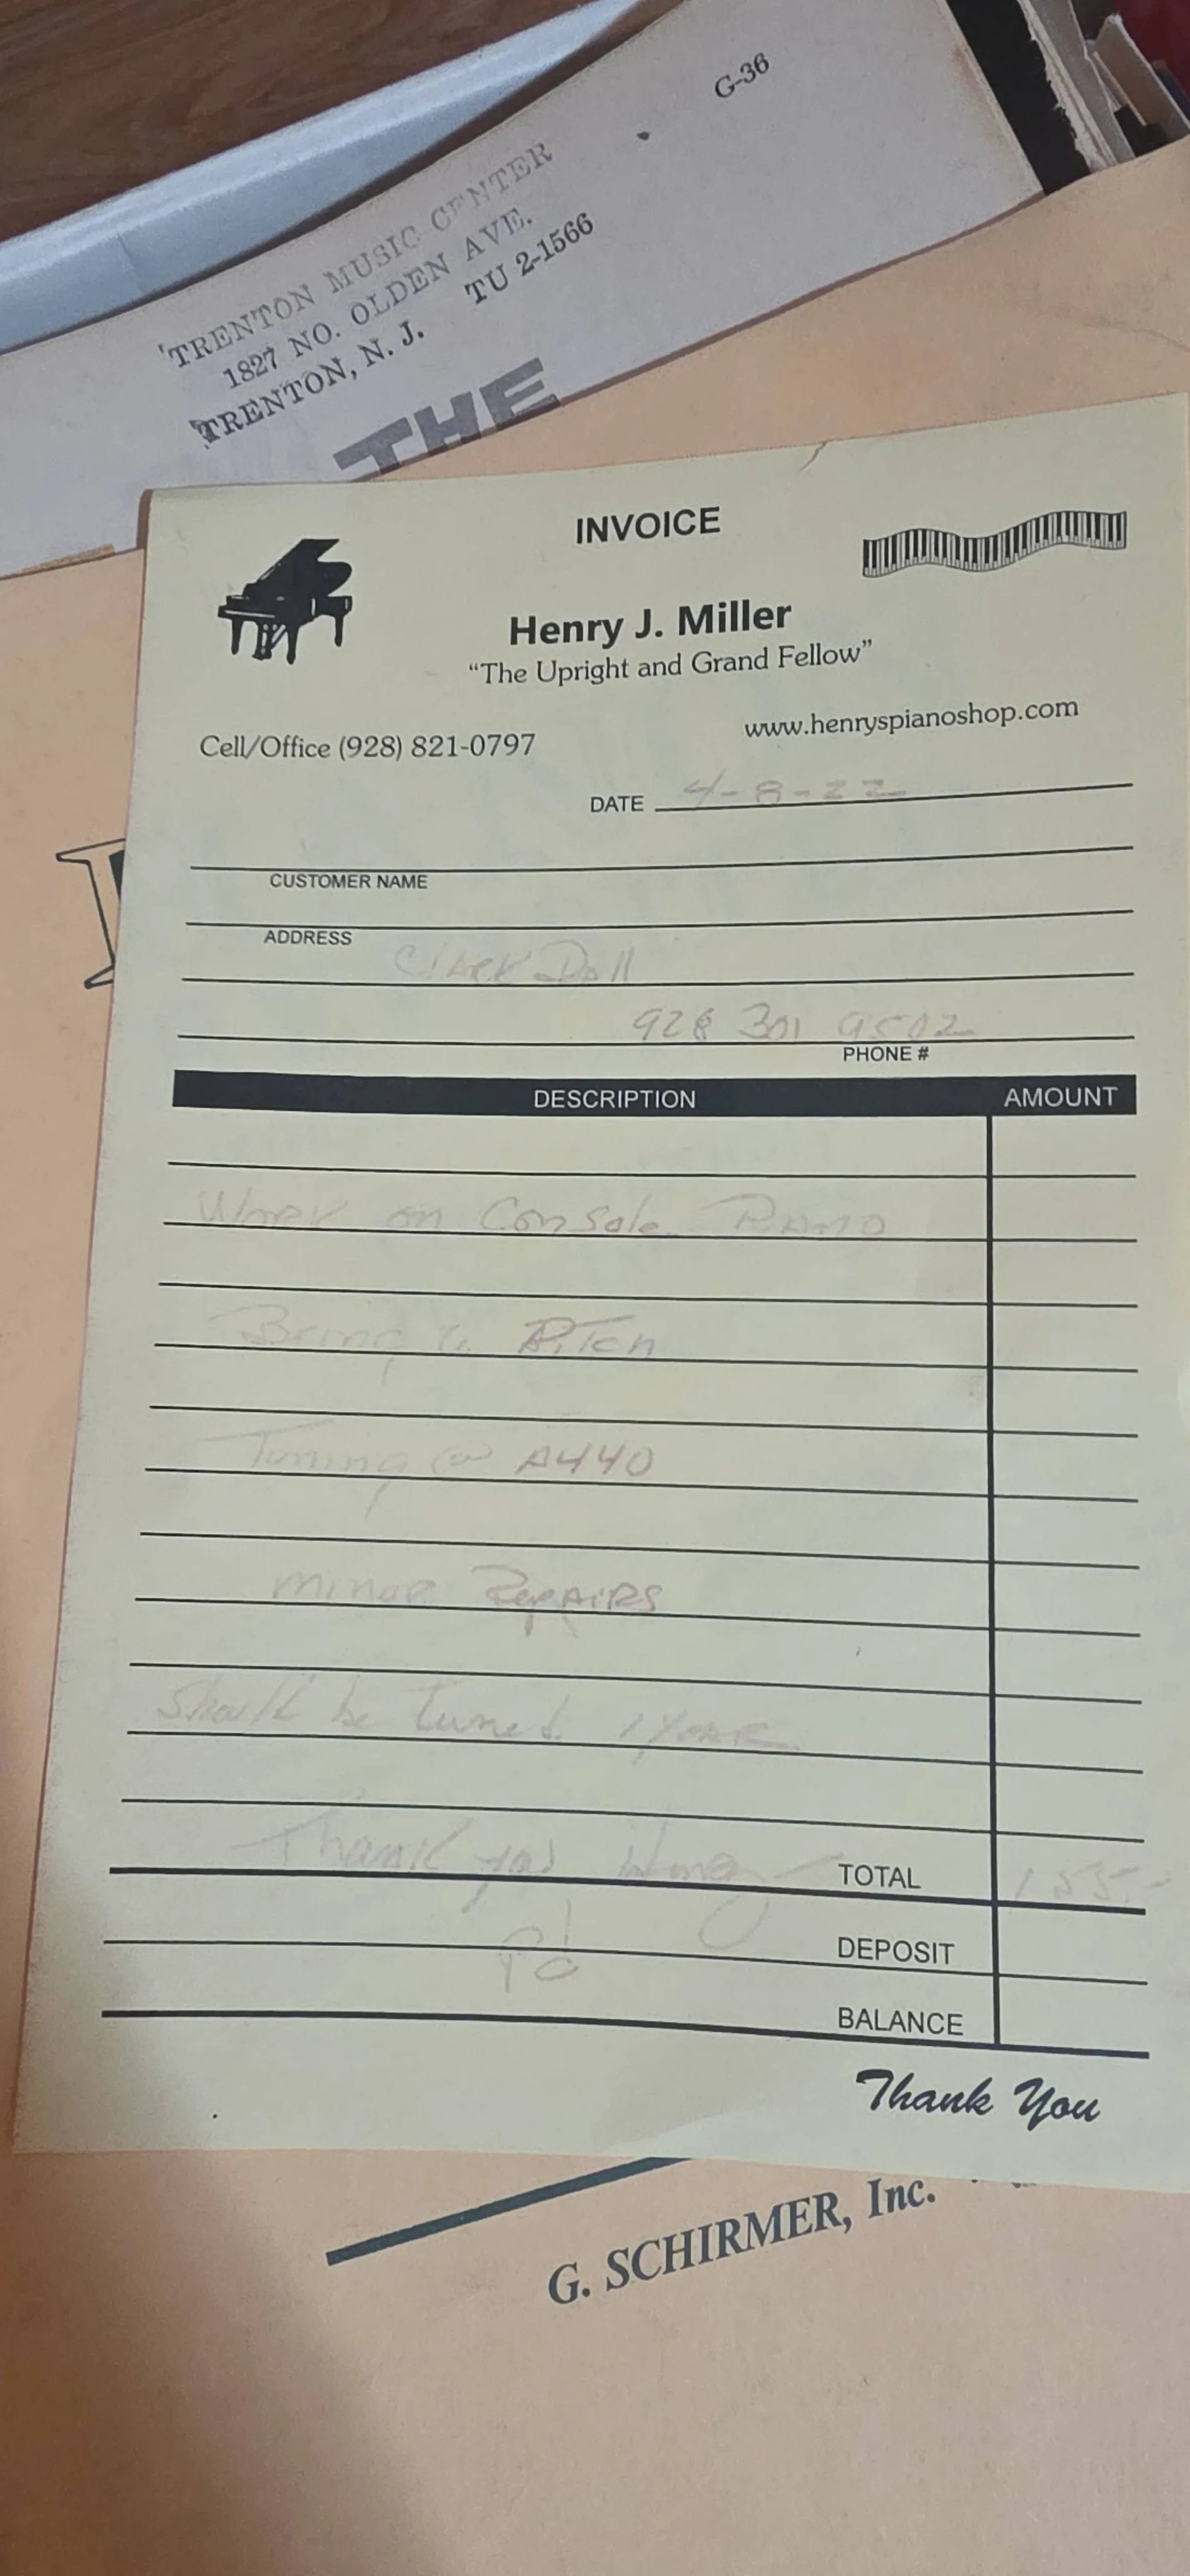 G-36
TRENTON MUSIC CENTER
1827 NO. OLDEN AVE.
TRENTON, N. J. TU 2-1566
THE
INVOICE
Henry J. Miller
“The Upright and Grand Fellow”
Cell/Office (928) 821-0797 www.henryspianoshop.com
DATE 4-8-22
CUSTOMER NAME
ADDRESS
Doll
928 301 9502
PHONE #
DESCRIPTION AMOUNT
Work on Console Piano
Bring to Pitch
Tuning @ A440
minor Repairs
Should be tuned 1 year
Thank you Henry TOTAL 155.-
Pd DEPOSIT
BALANCE
Thank You
G. SCHIRMER, Inc.